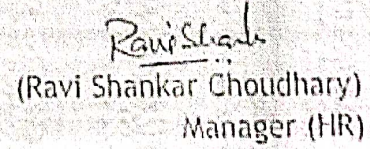 Ravi Shank
(Ravi Shankar Choudhary)
Manager (HR)